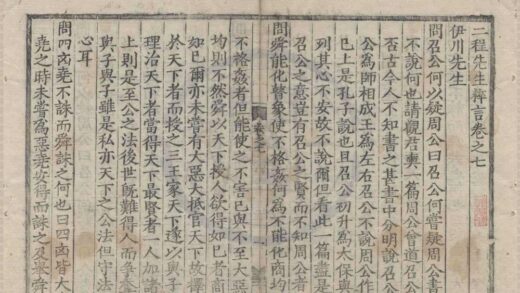 二程先生粹言卷之七
伊川先生
問召公何以疑周公曰召公何嘗疑周公書
不說何也請觀君奭一篇周公曾道召公
否古今人不知書之甚書中分明說召公
公為師相成王為左右召公不說周公作
已上是孔子說也且召公初升為太保與
列其心不安故不說爾但看此一篇盡是
召公之意豈有召公之賢而不知周公者
問舜能化瞽象使不格姦何為不能化商均
不格姦者但能使之不害己與不至大惡
則不然舜以天下授人欲得如己者商
如己爾亦未嘗有大惡大抵官天下故擇
於天下者而授之三王家天下遂以與子
理治天下者當得天下最賢者一人加諸
上則是至公之法後世既難得人而爭奪
與子與子雖是私亦天下之公法但守法
心耳
問四凶堯不誅而舜誅之何也曰四凶皆大
堯之時未嘗為惡堯安得而誅之及舉舜